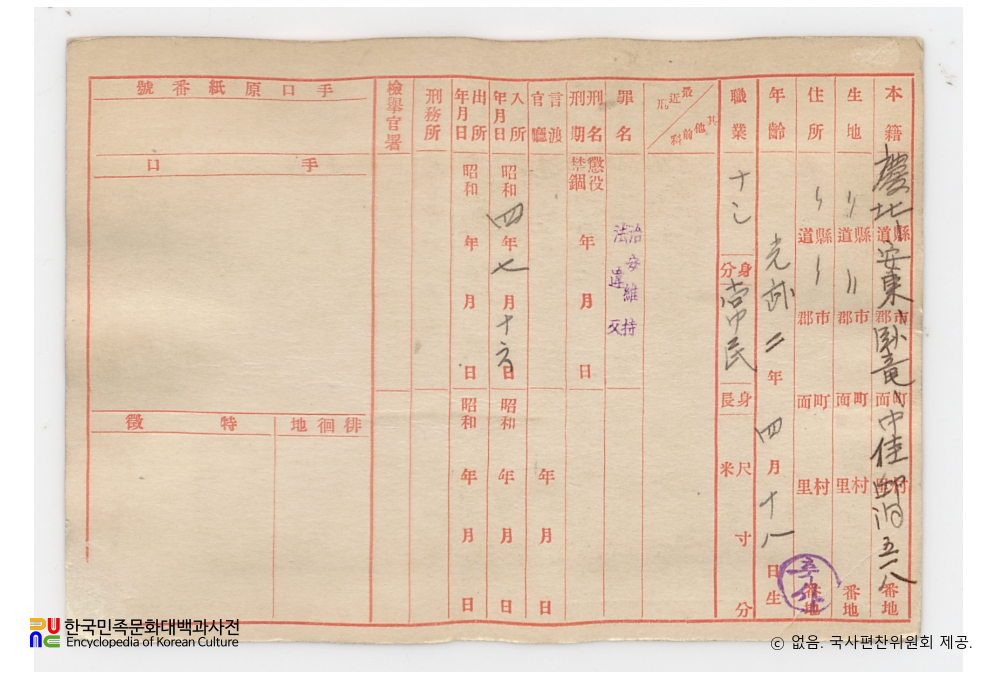 本籍 慶北道縣 安東市郡 臥竜町面 中佳邱洞村里 五一八番地
生地 〃道縣 〃市郡 町面 村里 番地
住所 〃道縣 〃市郡 町面 村里 番地
年齡 光武二年四月十八日生
職業
身分 常民
身長 尺米 寸 分
最近刑 其他前科
罪名 治安維持法違反
刑名刑期 懲役 禁錮 年 月 日
言渡官廳 年 月 日
入所年月日 昭和四年七月十六日 昭和 年 月 日
出所年月日 昭和 年 月 日 昭和 年 月 日
刑務所
檢擧官署
手口原紙番號
手口
徘徊地
特徵
한국민족문화대백과사전
Encyclopedia of Korean Culture
© 없음. 국사편찬위원회 제공.